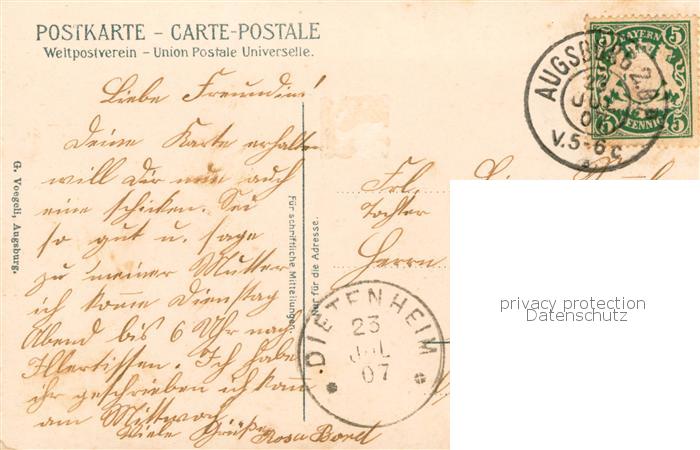 POSTKARTE – CARTE-POSTALE
Weltpostverein – Union Postale Universelle.
Liebe Freundin!
Deine Karte erhalten
will Dir nun auch
eine schicken. Sei
so gut u. sage
zu meiner Mutter
ich komme Dienstag
Abend bis 6 Uhr nach
Illertissen. Ich habe
ihr geschrieben ich kom
am Mittwoch
Viele Grüße
Rosa
G. Voegeli, Augsburg.
Für schriftliche Mitteilungen.
Nur für die Adresse.
5 BAYERN 5
5 PFENNIG 5
AUGSBURG 2.
23
JUL
V.5-6
Frl.
Tochter
Herrn
DIETENHEIM
23
JUL
07
privacy protection
Datenschutz